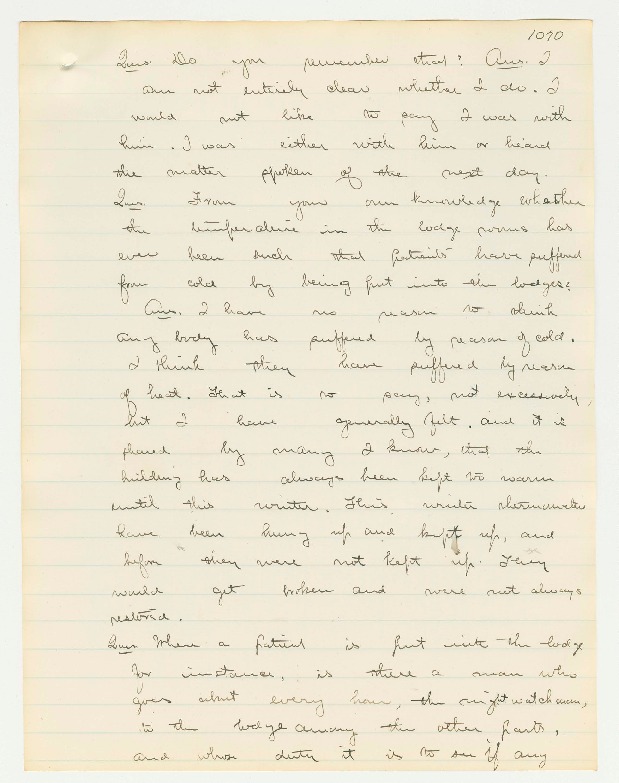 1090
Ques. Do you remember that? Ans. I
am not entirely clear whether I do. I
would not like to say I was with
him. I was either with him or heard
the matter spoken of the next day.
Ques. From your own knowledge whether
the temperature in the lodge rooms has
ever been such that patients have suffered
from cold by being put into the lodges?
Ans. I have no reason to think
any body has suffered by reason of cold.
I think they have suffered by reason
of heat. That is to say, not excessively,
but I have generally felt, and it is
shared by many I know, that the
building has always been kept too warm
until this winter. This winter thermometers
have been hung up and kept up, and
before they were not kept up. They
would get broken and were not always
restored.
Ques. Where a patient is put into the lodge
for instance, is there a man who
goes about every hour, the night watchman,
to the lodge among the other parts,
and whose duty it is to see if any